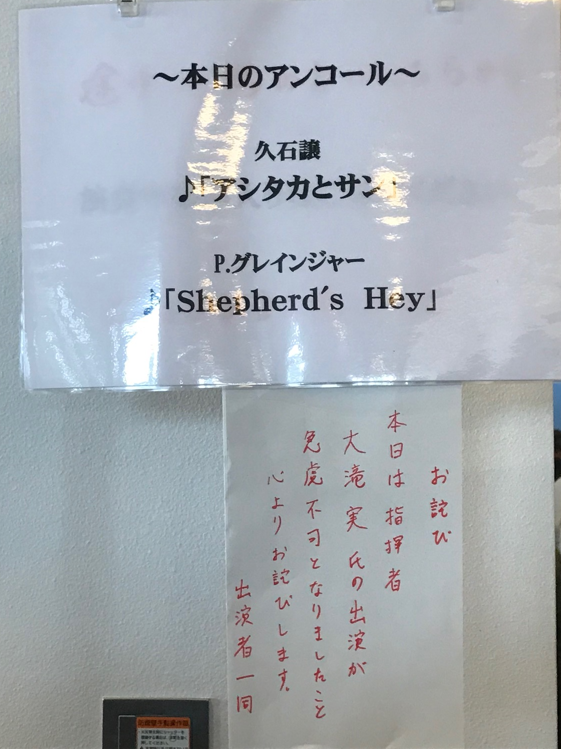 ～本日のアンコール～
久石譲
♪「アシタカとサン」
P.グレインジャー
♪「Shepherd's Hey」
お詫び
本日は指揮者
大滝実氏の出演が
急遽不可となりましたこと
心よりお詫びします。
出演者一同